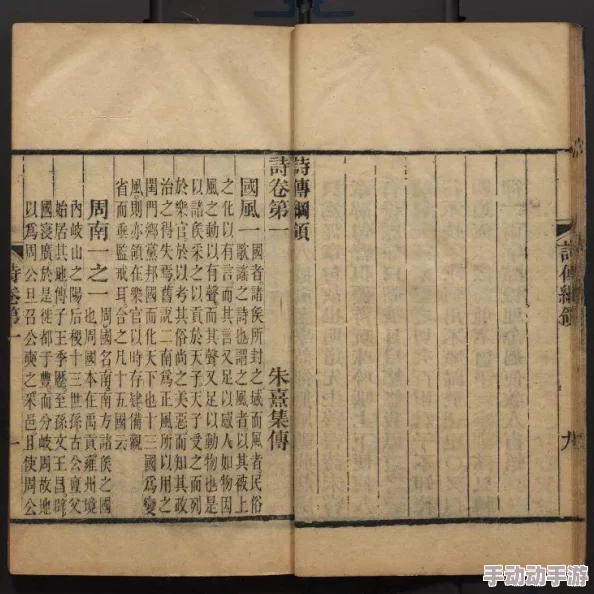 詩傳綱領
詩傳綱領
九
詩卷第一
朱熹集傳
國風一
國者諸侯所封之域而風者民俗
歌謠之詩也謂之風者以其被上
之化以有言而其言又足以感人如物因
風之動以有聲而其聲又足以動物也是
以諸侯采之以貢於天子天子受之而列
於樂官於以考其俗尚之美惡而知其政
治之得失焉舊說二南為正風所以用之
閨門鄉黨邦國而化天下也十三國為變
風則亦領在樂官以時存肄備觀
省而垂監戒耳合之凡十五國云
周南一之一
周國名南南方諸侯之國
也周國本在禹貢雍州境
內岐山之陽后稷十三世孫古公亶父
始居其地傳子王季歷至孫文王昌辟
國寖廣於是徙都于豐而分岐周故地
以為周公旦召公奭之采邑且使周公
詩卷第一
一
手动动手游